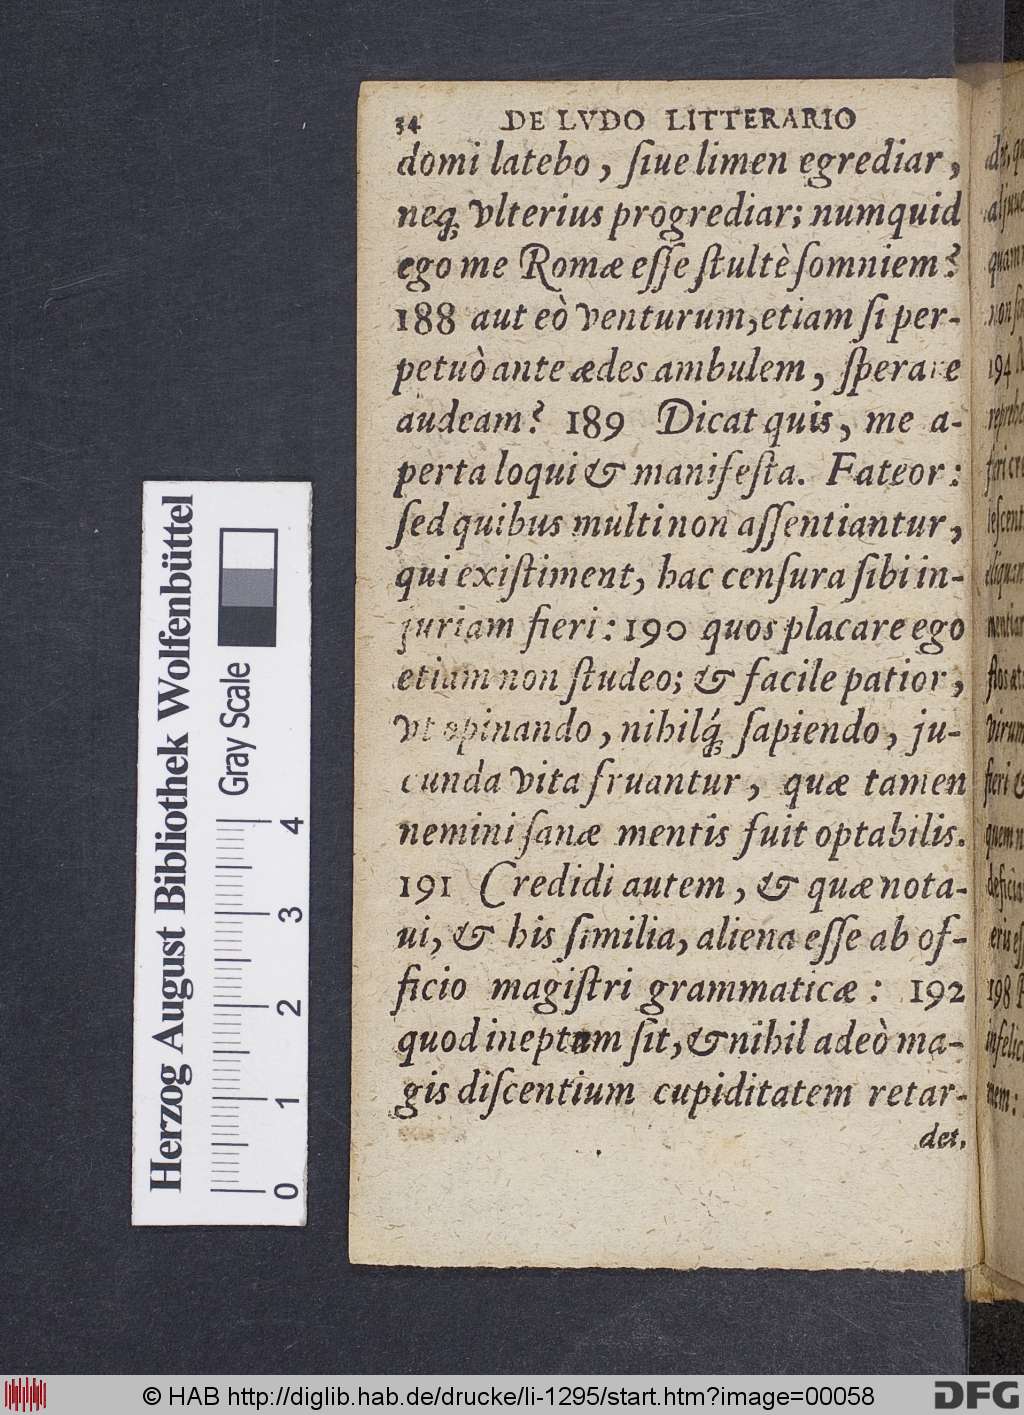 34 DE LVDO LITTERARIO
domi latebo, ſiue limen egrediar,
neq; vlterius progrediar; numquid
ego me Romæ eſſe ſtultè ſomniem?
188 aut eò venturum, etiam ſi per-
petuò ante ædes ambulem, ſperare
audeam? 189 Dicat quis, me a-
perta loqui & manifeſta. Fateor:
ſed quibus multi non aſſentiantur,
qui exiſtiment, hac cenſura ſibi in-
juriam fieri: 190 quos placare ego
etiam non ſtudeo; & facile patior,
vt opinando, nihilq́; ſapiendo, ju-
cunda vita fruantur, quæ tamen
nemini ſanæ mentis fuit optabilis.
191 Credidi autem, & quæ nota-
ui, & his ſimilia, aliena eſſe ab of-
ficio magiſtri grammaticæ: 192
quod ineptum ſit, & nihil adeò ma-
gis diſcentium cupiditatem retar-
det.
Herzog August Bibliothek Wolfenbüttel
Gray Scale
0 1 2 3 4
194
198
© HAB http://diglib.hab.de/drucke/li-1295/start.htm?image=00058
DFG